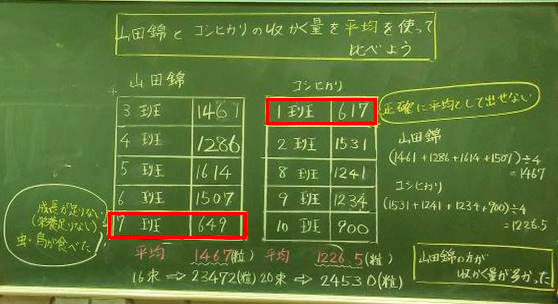 山田錦とコシヒカリの収かく量を平均を使って
比べよう
山田錦
3 班 1461
4 班 1286
5 班 1614
6 班 1507
7 班 649
平均 1467(粒)
16束 ⇒ 23472(粒)
コシヒカリ
1 班 617
2 班 1531
8 班 1241
9 班 1234
10 班 900
平均 1226.5(粒)
20束 ⇒ 24530(粒)
成長が足りない
(栄養足りない)
虫・鳥が食べた
正確に平均として出せない
山田錦
(1461+1286+1614+1507)÷4
=1467
コシヒカリ
(1531+1241+1234+900)÷4
=1226.5
山田錦の方が
収かく量が多かった